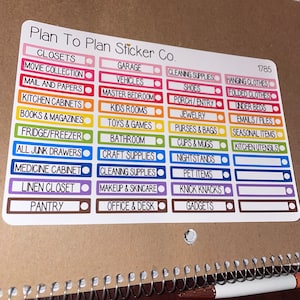 Plan To Plan Sticker Co.
1785
CLOSETS
MOVIE COLLECTION
MAIL AND PAPERS
KITCHEN CABINETS
BOOKS & MAGAZINES
FRIDGE/FREEZER
ALL JUNK DRAWERS
MEDICINE CABINET
LINEN CLOSET
PANTRY
GARAGE
VEHICLES
MASTER BEDROOM
KIDS ROOMS
TOYS & GAMES
BATHROOM
CRAFT SUPPLIES
CLEANING SUPPLIES
MAKEUP & SKINCARE
OFFICE & DESK
CLEANING SUPPLIES
SHOES
PORCH/ENTRY
JEWELRY
PURSES & BAGS
CUPS & MUGS
NIGHTSTANDS
PET ITEMS
KNICK KNACKS
GADGETS
HANGING CLOTHES
FOLDED CLOTHES
UNDER BEDS
EMAILS / FILES
SEASONAL ITEMS
KITCHEN UTENSILS